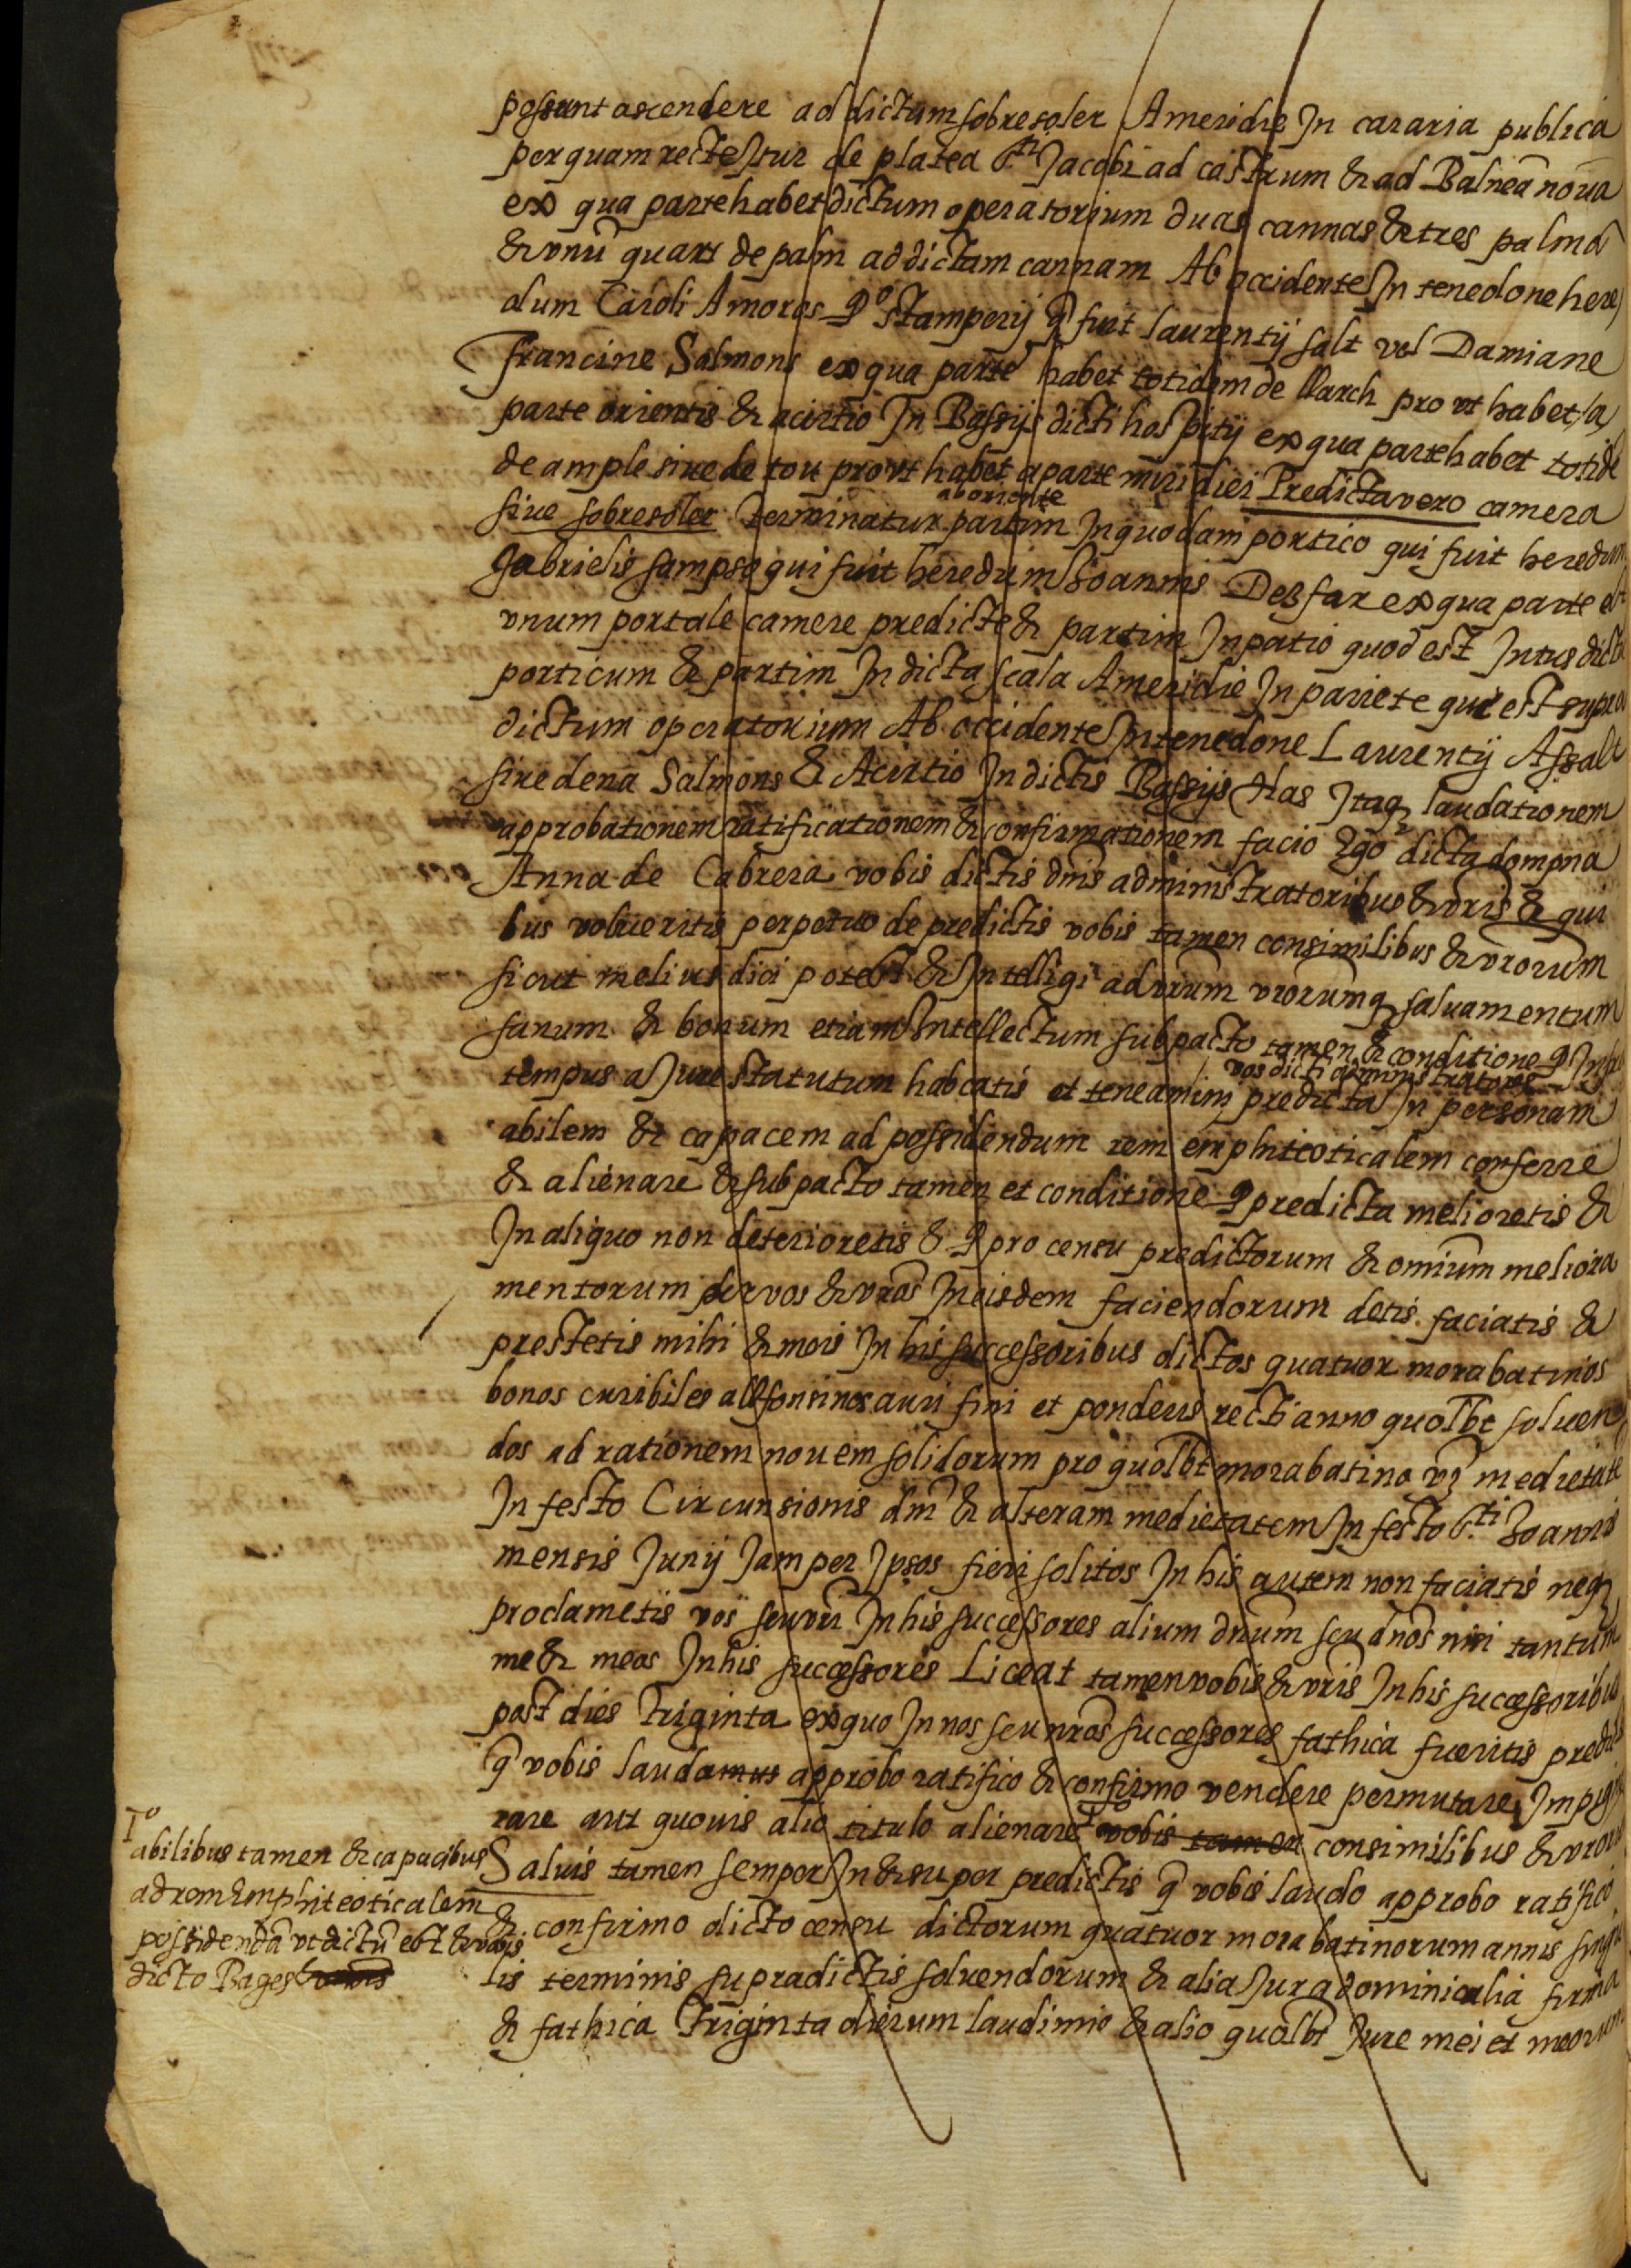 possunt ascendere ad dictum sobresoler A meridie In cararia publica
per quam recte Itur de platea Sti Jacobi ad castrum & ad Balnea noua
ex qua parte habet dictum operatorium duas cannas & tres palmos
& vnu quart de palm ad dictam cannam Ab occidente In tenedone here
dum Caroli Amoros qo stamperij q fuit laurentij salt vel Damiane
Francine Salmons ex qua parte habet totidem de llarch pro vt habet a
parte orientis & a circio In Bassijs dicti hospitij ex qua parte habet totide
de ample siue de tou pro vt habet a parte miridiei Predicta vero camera
siue sobresoler terminatur ab oriente partim In quodam portico qui fuit heredum
Gabrielis sampso qui fuit heredum Joannis Desfar ex qua parte est
vnum portale camere predicte & partim In patio quod est Intus dictu
porticum & partim In dicta scala A meridie In pariete qui est supra
dictum operatorium Ab occidente In tenedone Laurentij Assalt
siue dena Salmons & A circio In dictis Bassijs Has Itaq laudationem
approbationem ratificationem & confirmationem facio Ego dicta dompna
Anna de Cabrera vobis dictis dnis administratoribus & vris & qui
bus volueritis perpetuo de predictis vobis tamen consimilibus & vrorum
sicut melius dici potest & Intelligi ad vrum vrorumq saluamentum
sanum & bonum etiam Intellectum sub pacto tamen & conditione q Infra
tempus a Jure statutum habeatis et teneamini vos dicti administratores predicta In personam
abilem & capacem ad possidendum rem emphiteoticalem conferre
& alienare & sub pacto tamen et conditione q predicta melioretis &
In aliquo non deterioretis & q pro censu predictorum & omium meliora
mentorum per vos & vros In eisdem faciendorum detis faciatis &
prestetis mihi & meis In his successoribus dictos quatuor morabatinos
bonos curibiles allfonsinos auri fini et ponderis recti anno quolbt soluen
dos ad rationem nouem solidorum pro quolbt morabatino vz medietate
In festo Circunsionis dni & alteram medietatem In festo Sti Joannis
mensis Junij Jam per Ipsos fieri solitos In his autem non faciatis neq
proclametis vos seu vri In his successores alium dnum seu dnos nisi tantum
me & meos In his successores Liceat tamen vobis & vris In his successoribus
post dies Triginta ex quo In nos seu nros successores fathica fueritis predicta
q vobis laudamus approbo ratifico & confirmo vendere permutare Impigno
rare aut quouis alio titulo alienare To vobis tamen consimilibus & vroru
Saluis tamen semper In & super predictis q vobis laudo approbo ratifico
& confirmo dicto censu dictorum quatuor morabatinorum annis singu
lis terminis supradictis soluendorum & alia Jura dominicalia firma
& fathica Triginta dierum laudimio & alio quolbt Jure mei et meorum
To
abilibus tamen & capacibus
ad rem Emphiteoticalem
possidenda vt dictu est & vobis
dicto Bages